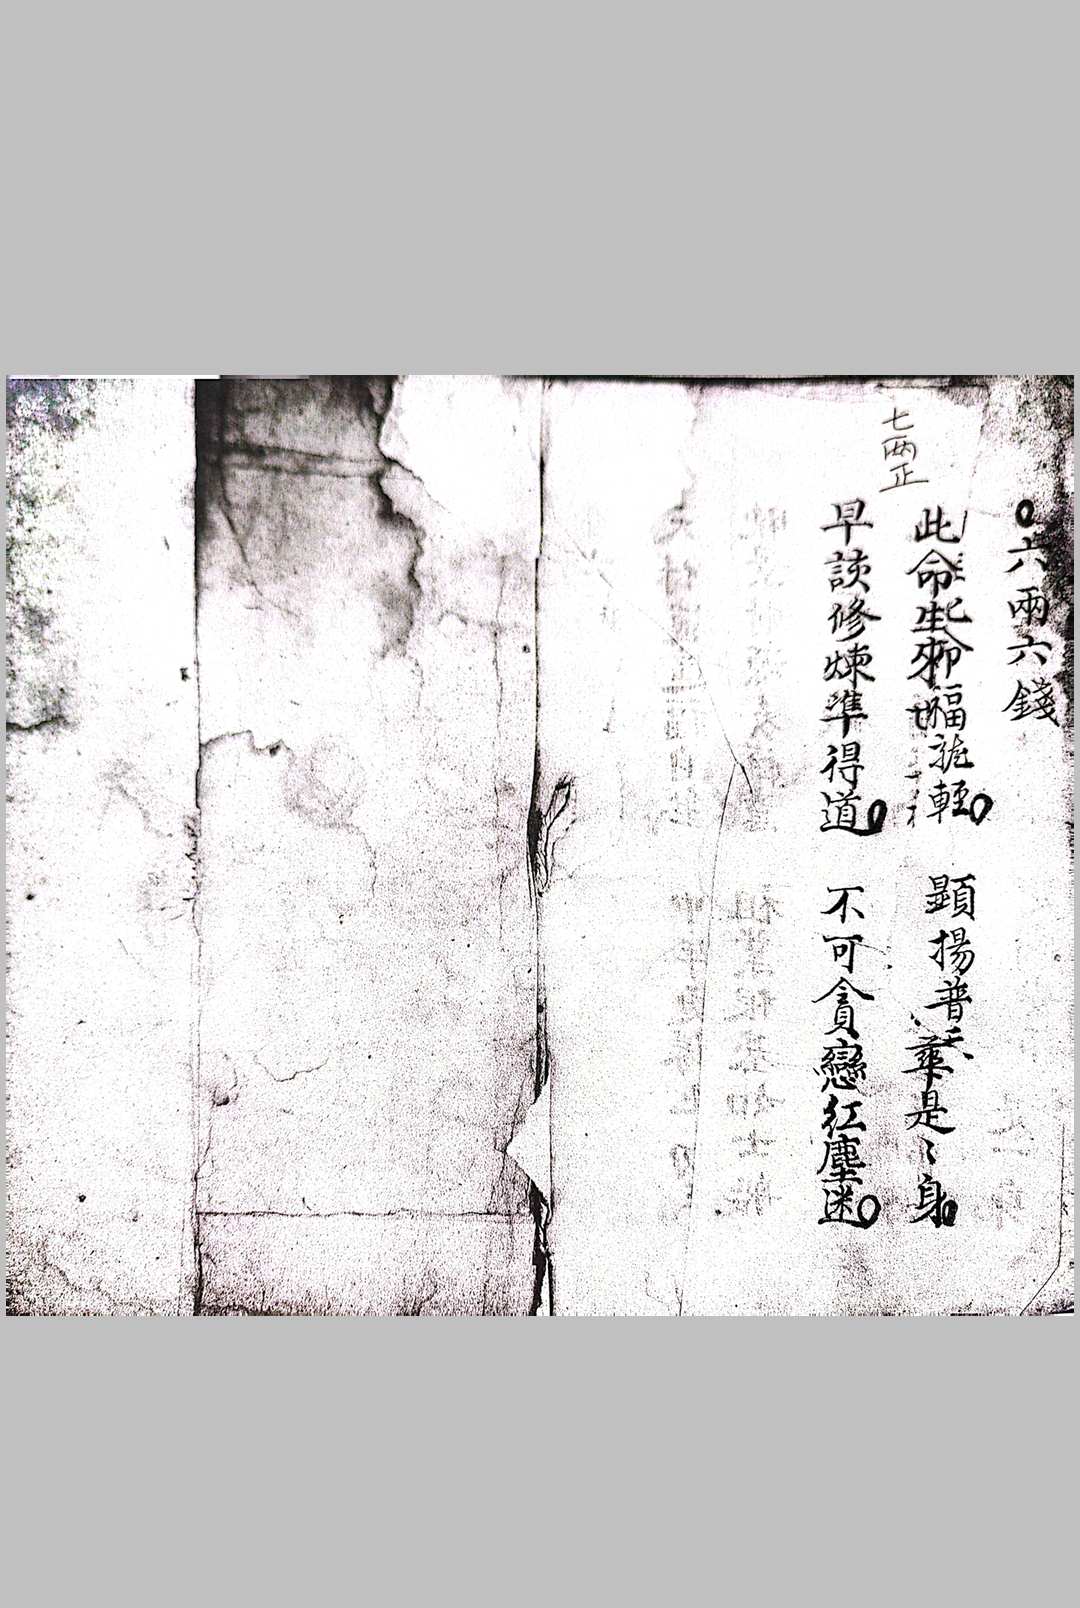 六兩六錢
七兩正
此命生來福 輕 顯揚普天 是〻身
早談修煉準得道 不可貪戀紅塵迷